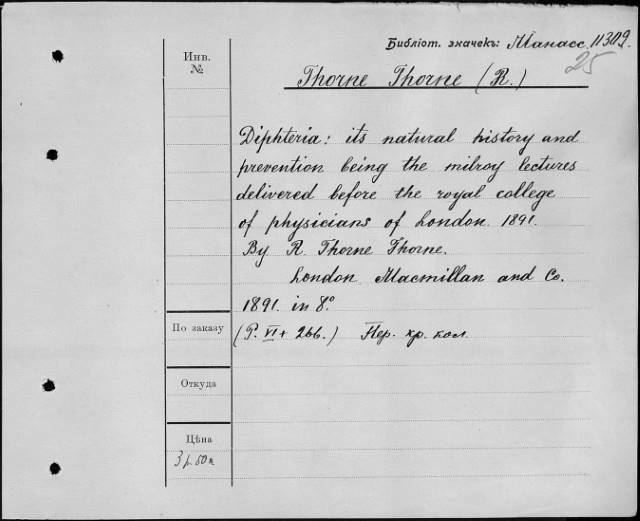 Библіот. значекъ: Манасс. 11309.
25
Инв.
№
Thorne Thorne (R.)
Diphteria: its natural history and
prevention being the milroy lectures
delivered before the royal college
of physicians of London 1891.
By R. Thorne Thorne.
London Macmillan and Co.
1891. in 8°
По заказу
(P. VI + 266.) Пер. кр. кол.
Откуда
Цѣна
3 р. 50 к